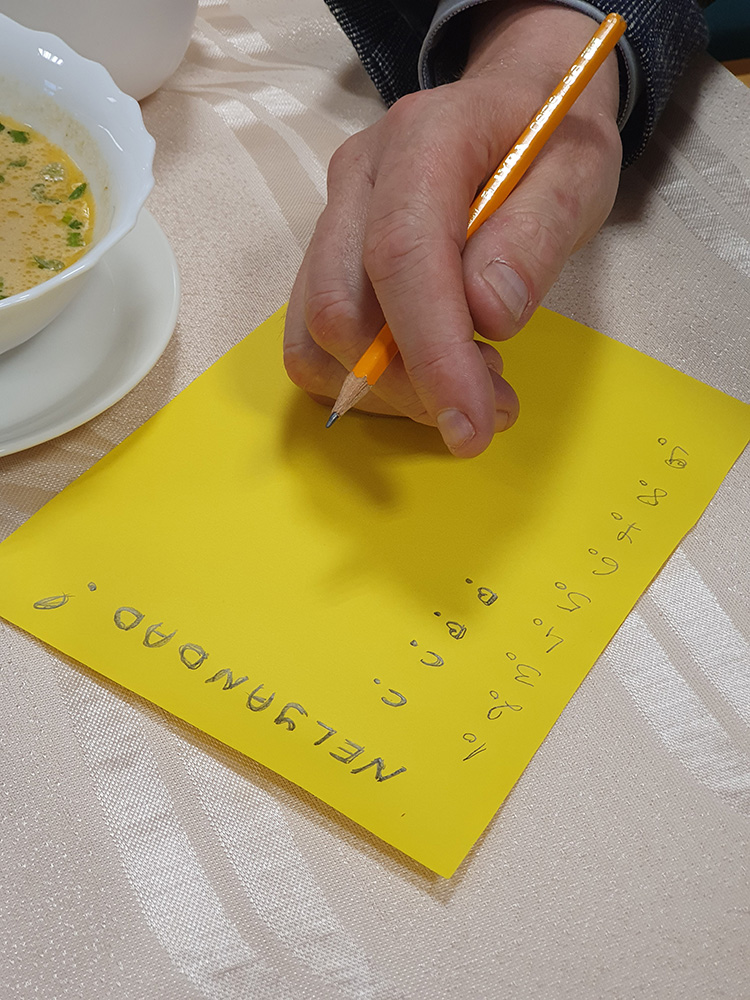 NELYANDAD.
1. C.
2. C.
3. B.
4. B.
5.
6.
7.
8.
9.